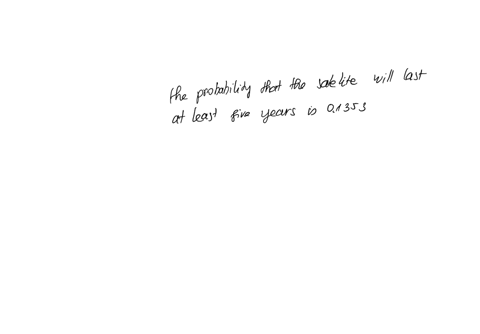 the probability that the satelite will last
at least five years is 0.1353